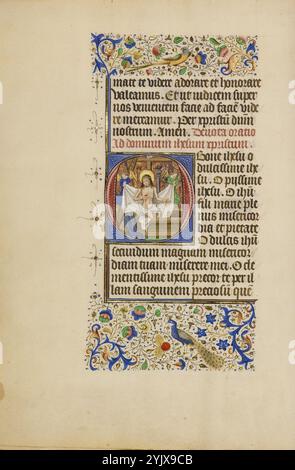 mate te videre adorare et honorare
valeamus. Et ut iudicem super
nos venientem facie ad faciē vide
re mereamur. Per xpristū dūm
nostrum. Amen. Devota oratio
ad dominum ihesum xpristum.
O bone ihesu o
dulcissime ihe
su. O piissime
ihesu. O ihū
fili marie ple
nus misericor
dia et pietate
O dulcis ihū
secundum magnam misericor
diam tuam miserere mei. O cle
mentissime ihesu precor te per il
lum sanguinem preciosū quē
alamy
Image ID: 2YJX9CB
www.alamy.com